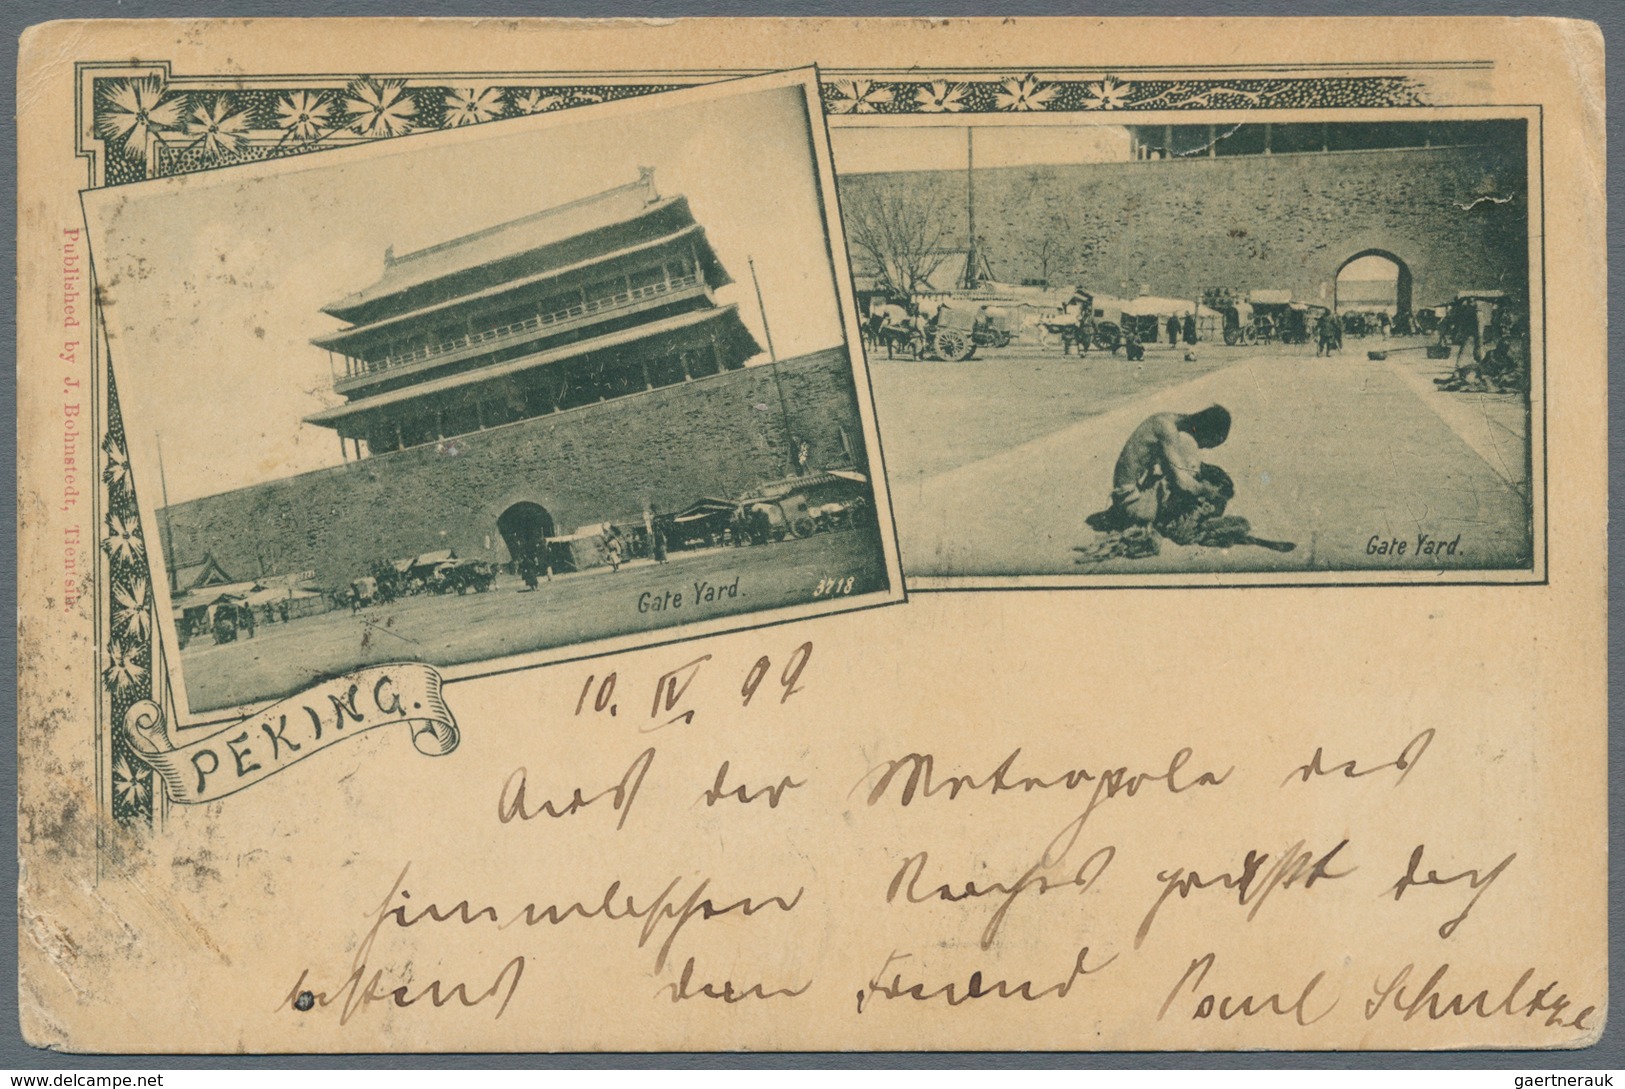 Published by J. Bohnstedt, Tientsin.
Gate Yard.
3718
Gate Yard.
PEKING.
10. IV. 99
Aus der Metropole des
himmlischen Reiches grüßt dich
bestens dein Freund Paul Schultze
delcampe.net
gaertnerauk